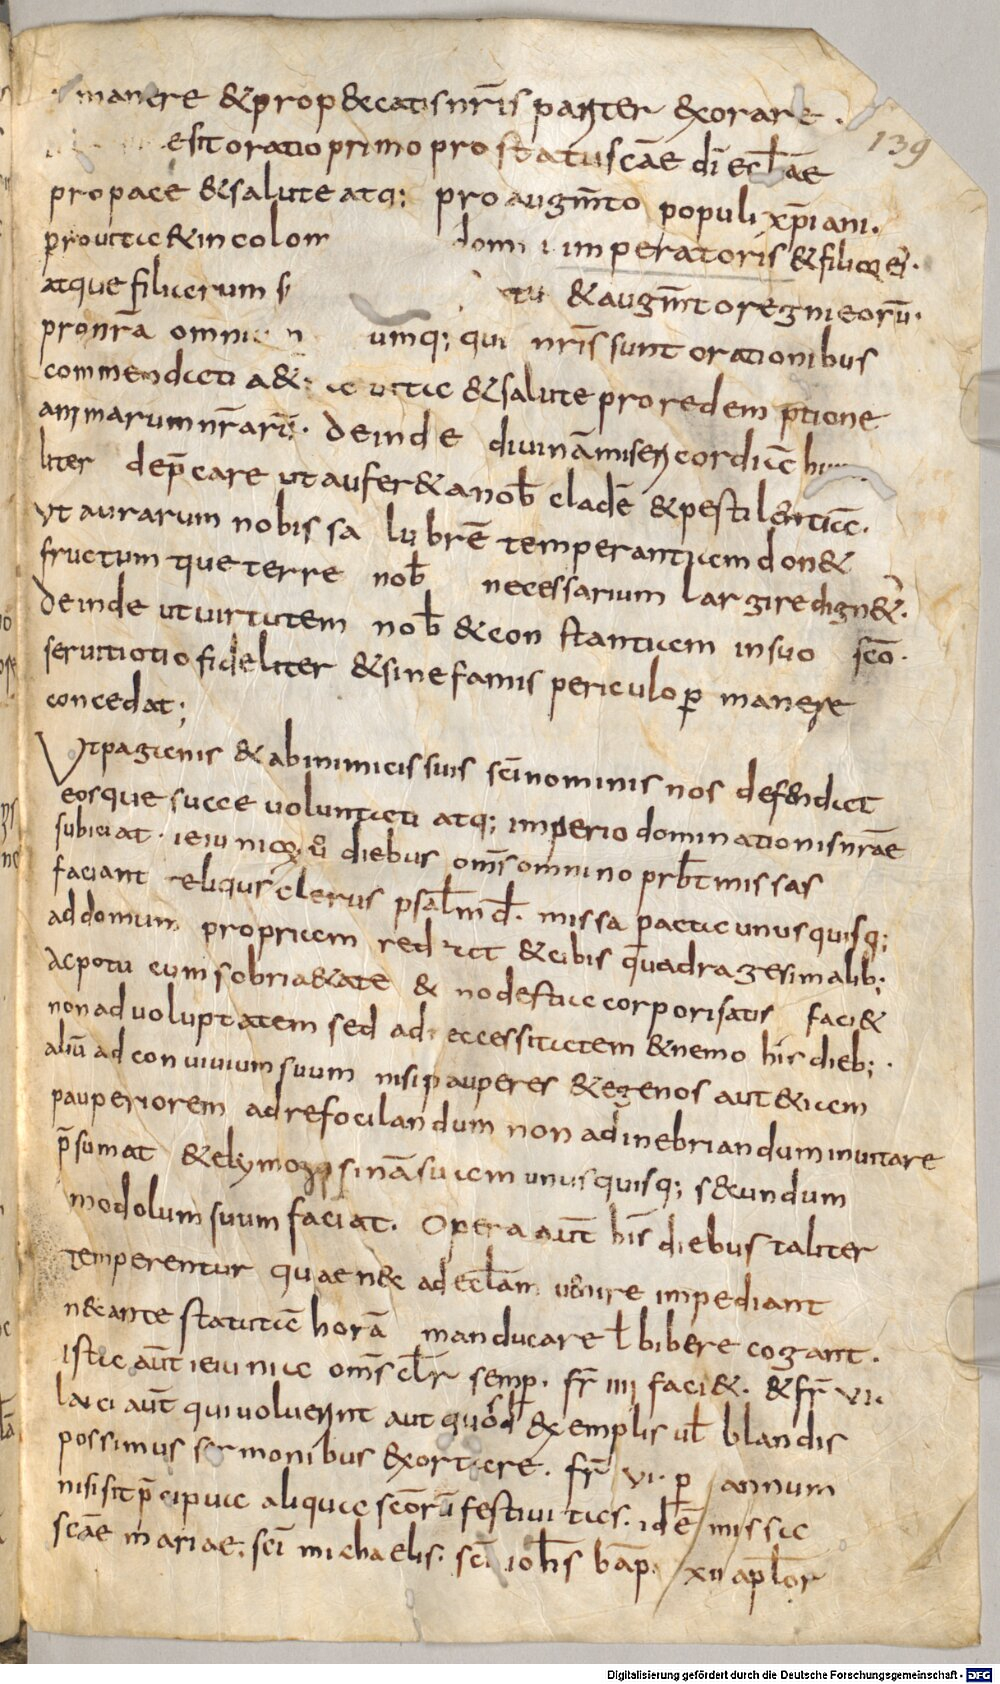 manere & prop&catis nr̄is pariter exorare.
139
est oratio primo pro statu scāe dī eclāe
pro pace & salute atq; pro augm̄to populi xp̄iani.
pro uita & incolom domi imperatoris & filioꝝ ei.
atque filiarum & augm̄to regni eorū.
pro nr̄a omni umq; qui nr̄is sunt orationibus
commendati uita & salute pro redemptione
animarum nr̄arū. Deinde diuinā misericordia
liter dep̄care ut aufer& a nob̄ cladē & pestilentia.
Vt aurarum nobis salubrē temperantiam don&
fructumque terre nob̄ necessarium largire dign&.
Deinde ut uirtutem nob̄ & constantiam in suo scō.
seruitiotio fideliter & sine famis periculo ꝑmanere
concedat;
Vt paganis & ab inimicis suis scī nominis nos defendat
eosque suae uoluntati atq; imperio dominationis nr̄ae
subiciat. ieiunioꝝ ū diebus om̄s omnino prb̄t missas
faciant reliqus clerus psal̄md̄. missa pacta unusquisq;
ad domum propriam redeat & cibis quadragesimalib;
Ac potu cum sobria&ate & no deftia corporis satis faci&
non ad uoluptatem sed ad eccessitatem & nemo his dieb;
aliū ad conuiuium suum nisi pauperes & egenos aut &iam
pauperiorem ad refocilandum non ad inebriandum inuitare
p̄sumat & elymo sinā suam unusquisq; s&undum
modolum suum faciat. Opera aūt his diebus taliter
temperentur quae n&c ad eclam uenire impediant
n& ante statutā horā manducare ł bibere cogant.
ista aūt ieiunia om̄s clr̄ semp. fr̄ iiii faci&. & fr̄ vi.
laici aūt qui uoluerint aut quos exemplis ul̄ blandis
possimus sermonibus exortare. fr̄ vi. ꝑ annum
nisi sit p̄cipua aliqua scōrū festiuitas. id ē missa
scāe mariae. scī michaelis. scī ioh̄is bap. xii apl̄or
Digitalisierung gefördert durch die Deutsche Forschungsgemeinschaft - DFG